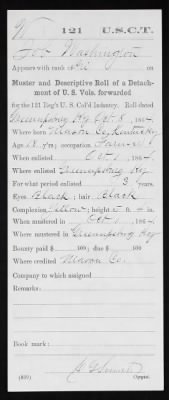 W 121 U.S.C.T.
Job Washington
Appears with rank of Pvt on
Muster and Descriptive Roll of a Detach-
ment of U. S. Vols. forwarded
for the 121 Reg't U. S. Col'd Infantry. Roll dated
Greensburg Ky Oct 8, 1864.
Where born Mason Co, Kentucky
Age 18 y'rs; occupation Farmer
When enlisted Oct 1, 1864.
Where enlisted Greensburg Ky
For what period enlisted 3 years.
Eyes Black; hair Black
Complexion Yellow; height 5 ft. 4 in.
When mustered in Oct 1, 1864.
Where mustered in Greensburg Ky
Bounty paid $ 100; due $ 100
Where credited Mason Co.
Company to which assigned
Remarks:
Book mark:
(339) Copyist.